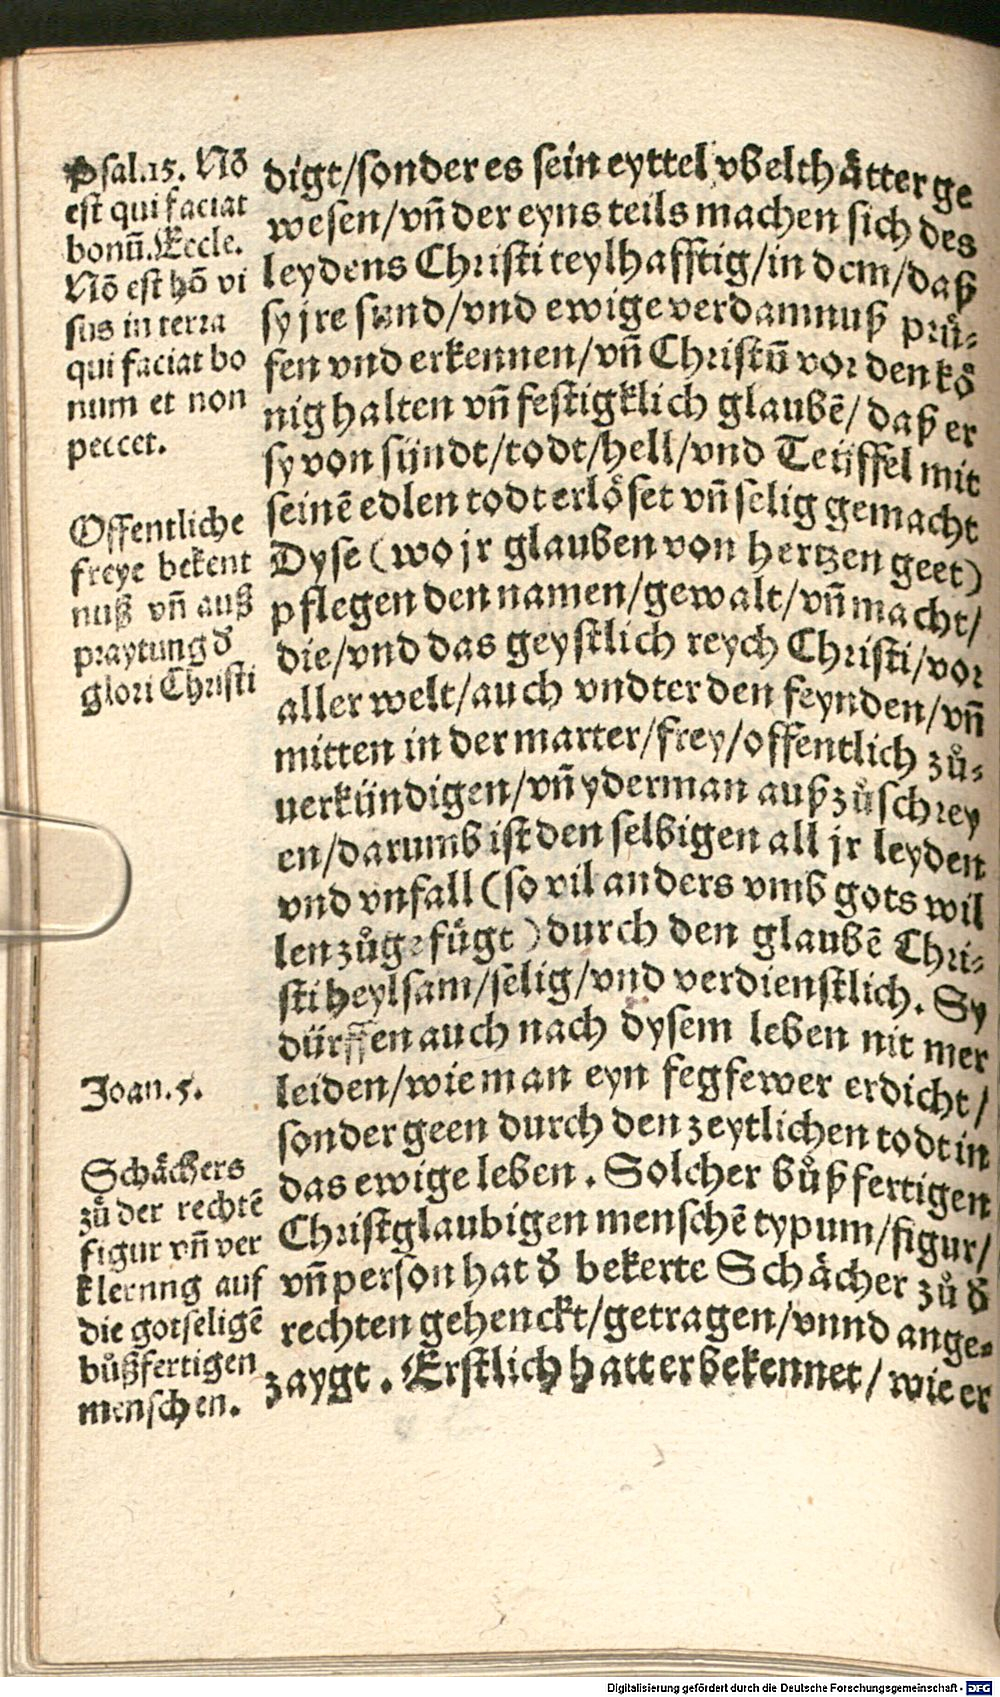 Psal.15. Nō
est qui faciat
bonū. Eccle.
Nō est hō vi
sus in terra
qui faciat bo
num et non
peccet.
Offentliche
freye bekent
nuß vn̄ auß
praytung d̕
glori Christi
Joan.5.
Schächers
zů der rechtē
figur vn̄ ver
klerung auf
die gotseligē
bůßfertigen
menschen.
digt/sonder es sein eyttel vbelthätter ge
wesen/vn̄ der eyns teils machen sich des
leydens Christi teylhafftig/in dem/daß
sy jre sund/vnd ewige verdamnuß prů-
fen vnd erkennen/vn̄ Christū vor den kö
nig halten vn̄ festigklich glaubē/daß er
sy von sündt/todt/hell/vnd Teüffel mit
seinē edlen todt erlöset vn̄ selig gemacht
Dyse (wo jr glauben von hertzen geet)
pflegen den namen/gewalt/vn̄ macht/
die/vnd das geystlich reych Christi/vor
aller welt/auch vndter den feynden/vn̄
mitten in der marter/frey/offentlich zů-
uerkündigen/vn̄ yderman auß zůschrey
en/darumb ist den selbigen all jr leyden
vnd vnfall (so vil anders vmb gots wil
len zůgefügt) durch den glaubē Chri-
sti heylsam/selig/vnd verdienstlich. Sy
dürffen auch nach dysem leben nit mer
leiden/wie man eyn fegfewer erdicht/
sonder geen durch den zeytlichen todt in
das ewige leben. Solcher bůßfertigen
Christglaubigen menschē typum/figur/
vn̄ person hat d̕ bekerte Schächer zů d̕
rechten gehenckt/getragen/vnnd ange-
zaygt. Erstlich hatt er bekennet/wie er
Digitalisierung gefördert durch die Deutsche Forschungsgemeinschaft - DFG